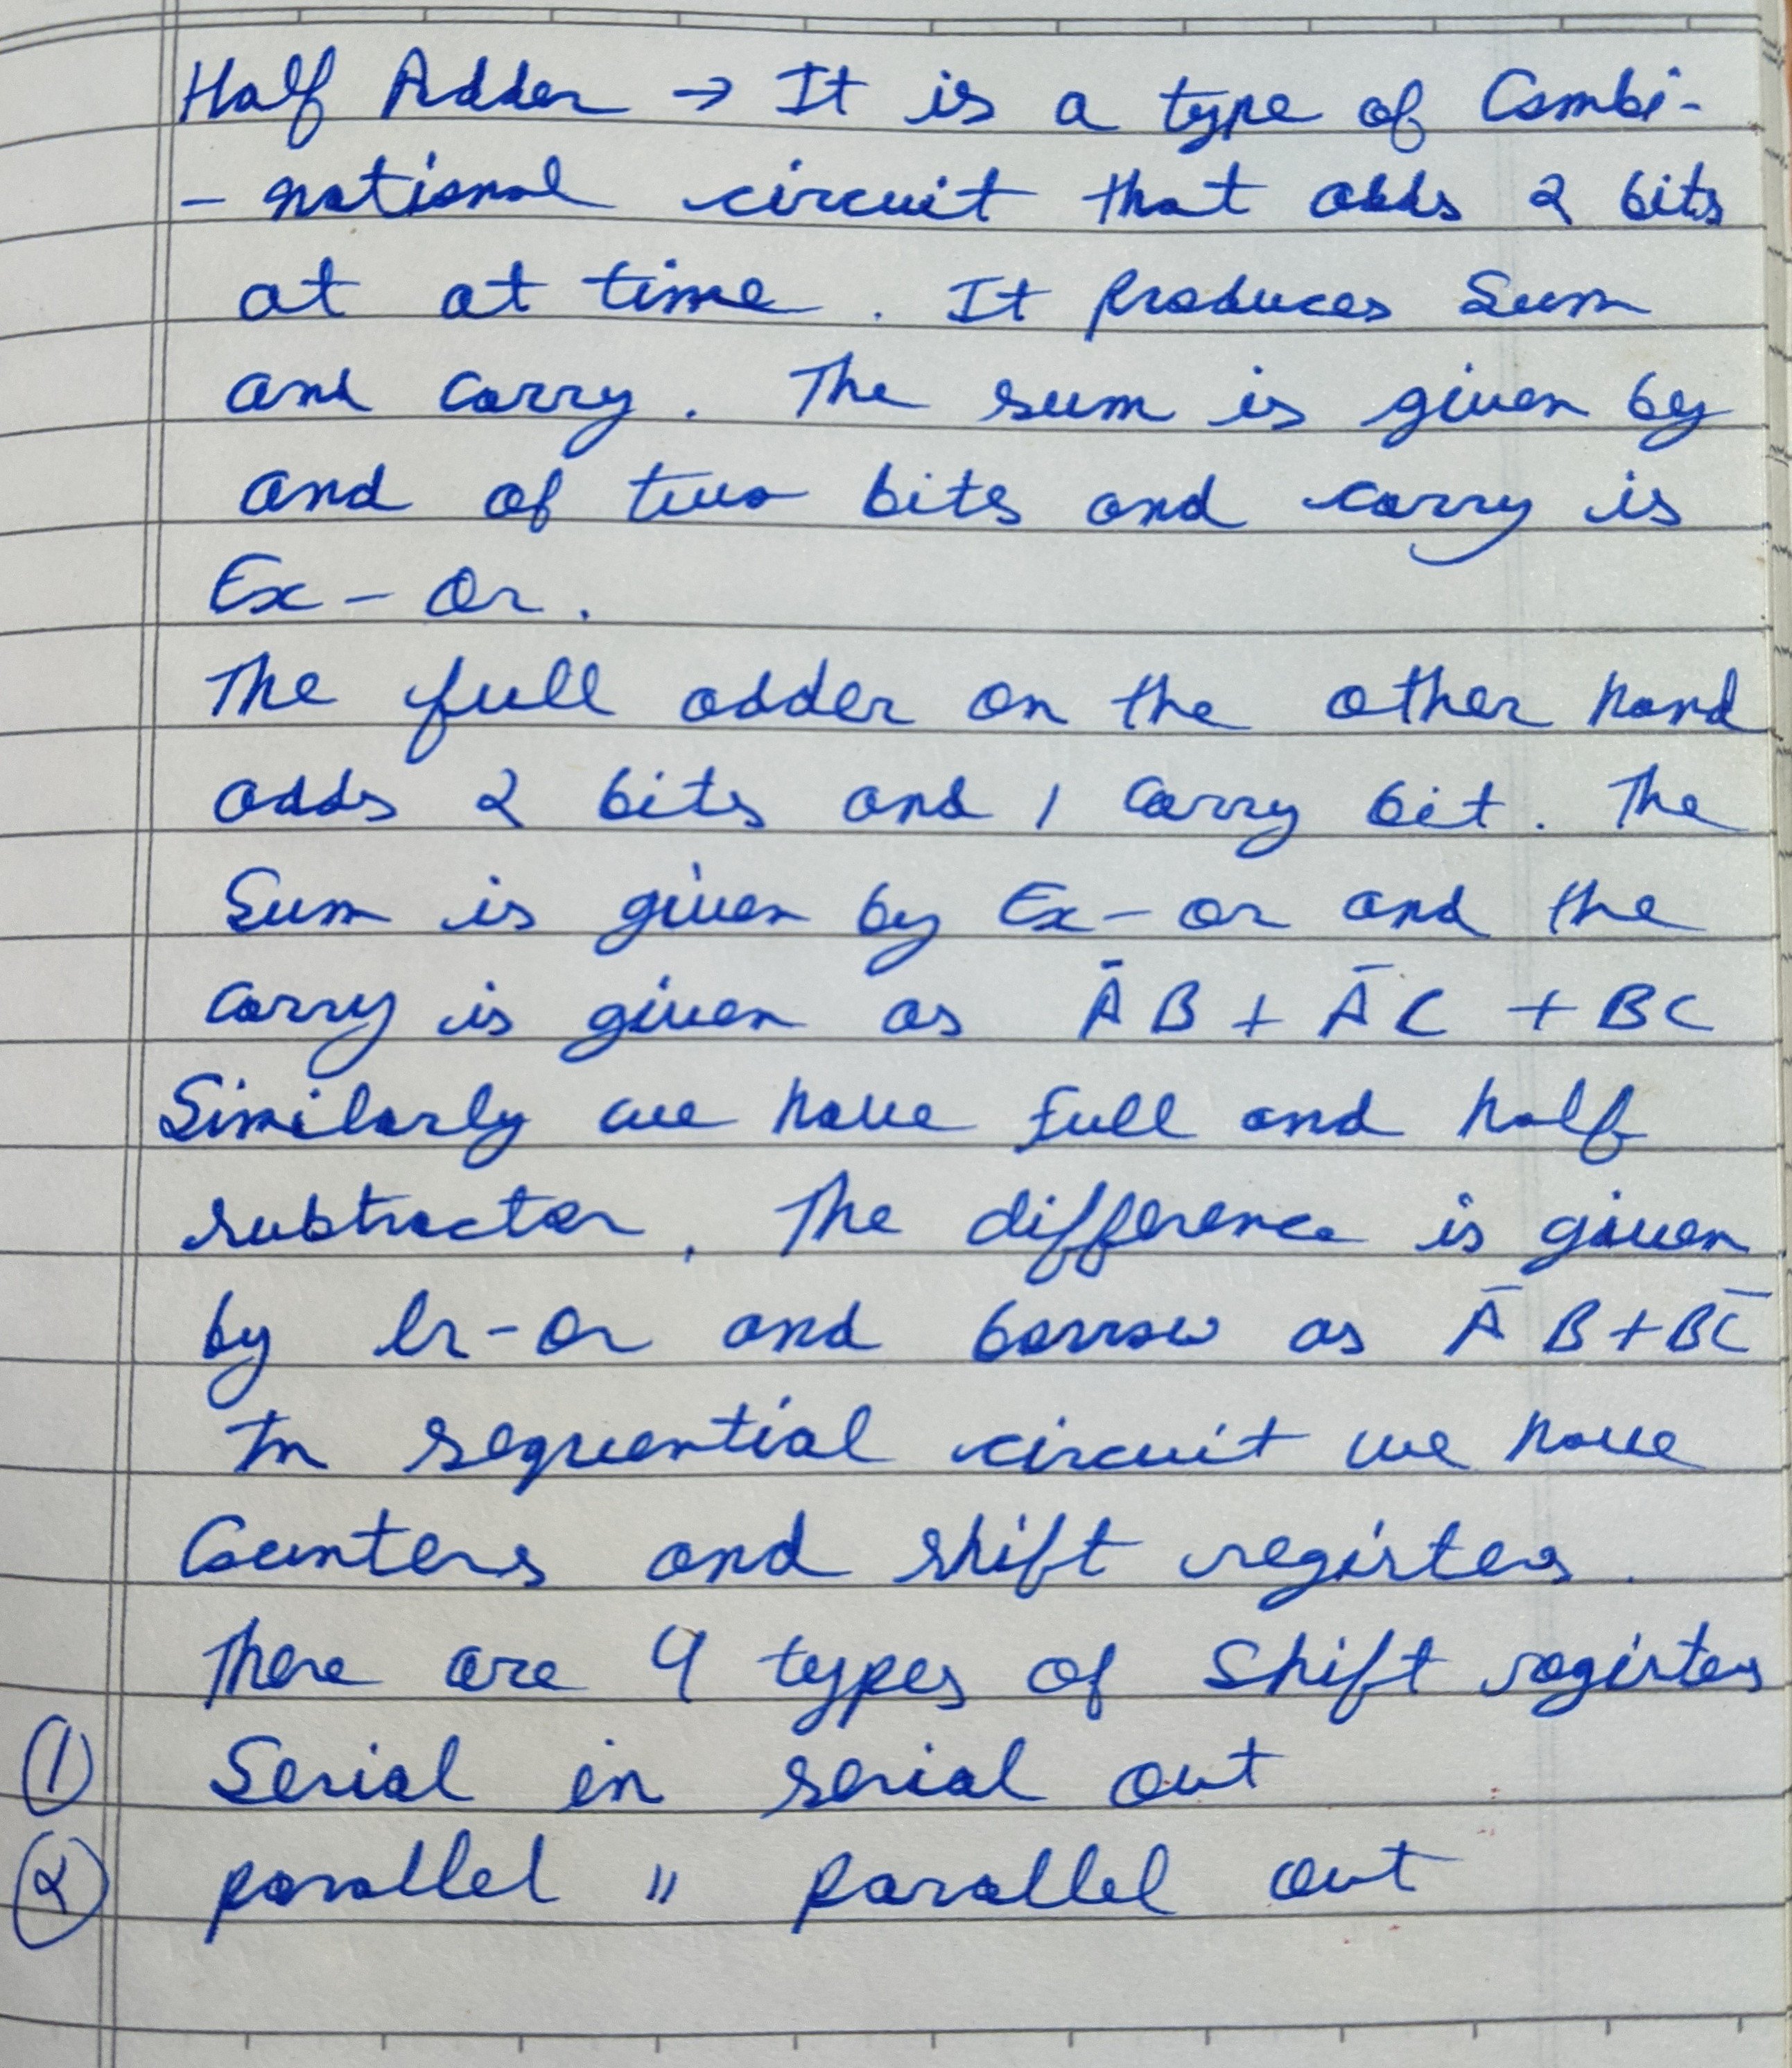 Half Adder → It is a type of Combi-
- national circuit that adds 2 bits
at at time. It produces Sum
and carry. The sum is given by
and of two bits and carry is
Ex-Or.
The full adder on the other hand
adds 2 bits and 1 carry bit. The
Sum is given by Ex-or and the
carry is given as A̅B + A̅C + BC
Similarly we have full and half
subtractor. The difference is given
by Ex-Or and borrow as A̅B+BC̅
In sequential circuit we have
Counters and shift registers.
There are 4 types of Shift registers
① Serial in serial out
② parallel " parallel out